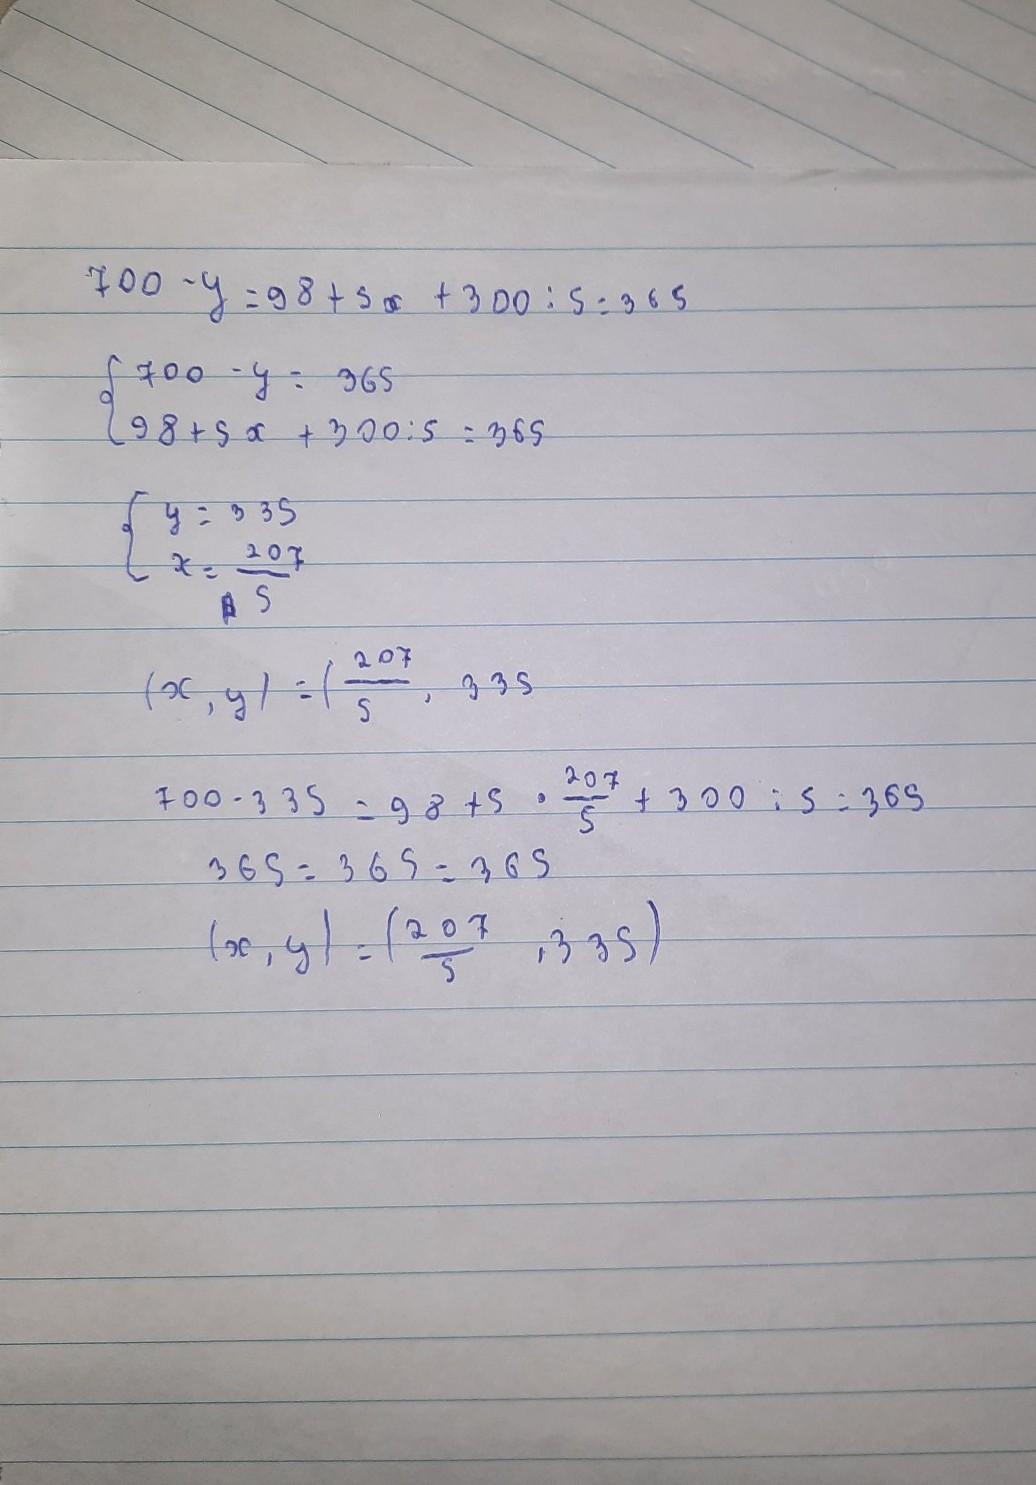 700 - y = 98 + 5x + 300 : 5 = 365
{ 700 - y = 365
98 + 5x + 300 : 5 = 365
{ y = 335
x = 207/5
(x, y) = (207/5, 335
700 - 335 = 98 + 5 · 207/5 + 300 : 5 = 365
365 = 365 = 365
(x, y) = (207/5, 335)